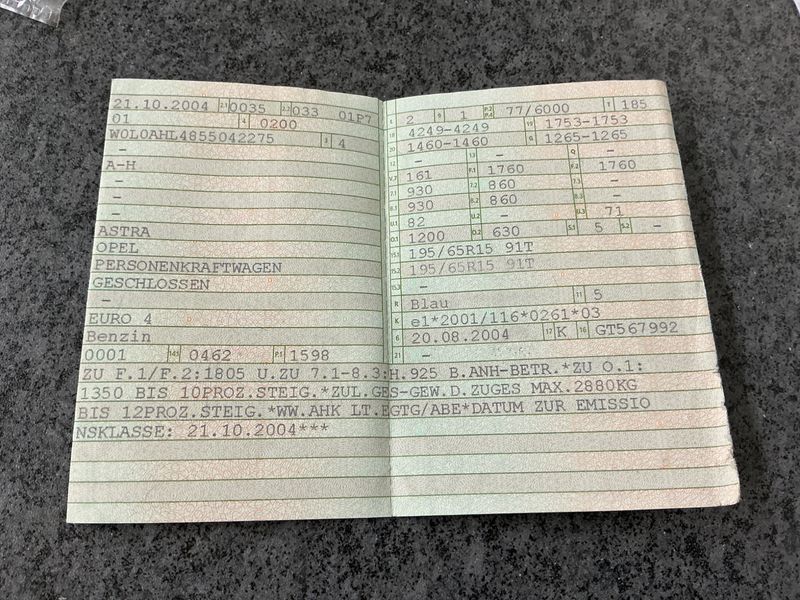 21.10.2004 2.1 0035 2.2 033 01P7
01 4 0200
W0L0AHL4855042275 3 4
–
A-H
–
–
–
ASTRA
OPEL
PERSONENKRAFTWAGEN
GESCHLOSSEN
–
EURO 4
Benzin
0001 14.1 0462 P.1 1598
L 2 9 1 P.2 P.4 77/6000 T 185
18 4249-4249 19 1753-1753
20 1460-1460 G 1265-1265
12 – 13 – Q –
V.7 161 F.1 1760 F.2 1760
7.1 930 7.2 860 7.3 –
8.1 930 8.2 860 8.3 –
U.1 82 U.2 – U.3 71
O.1 1200 O.2 630 S.1 5 S.2 –
15.1 195/65R15 91T
15.2 195/65R15 91T
15.3 –
R Blau 11 5
K e1*2001/116*0261*03
6 20.08.2004 17 K 16 GT567992
21 –
ZU F.1/F.2:1805 U.ZU 7.1-8.3:H.925 B.ANH-BETR.*ZU O.1:
1350 BIS 10PROZ.STEIG.*ZUL.GES-GEW.D.ZUGES MAX.2880KG
BIS 12PROZ.STEIG.*WW.AHK LT.EGTG/ABE*DATUM ZUR EMISSIO
NSKLASSE: 21.10.2004***